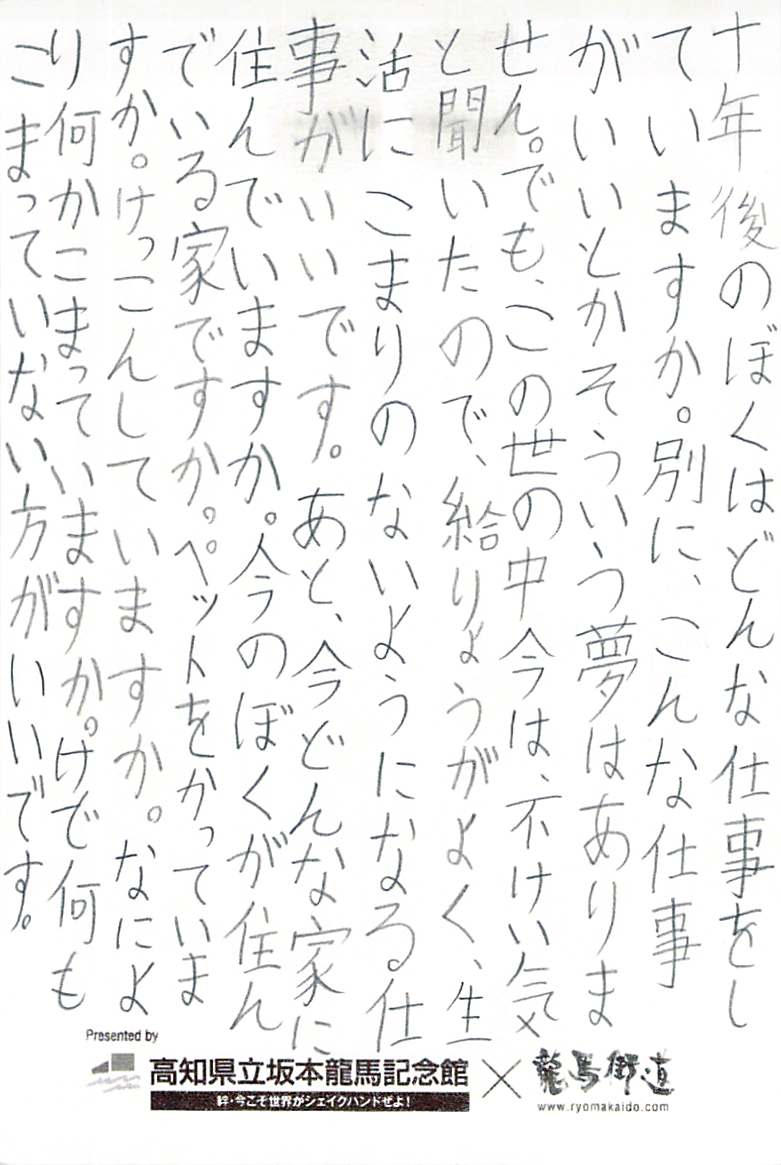 十年後のぼくはどんな仕事をし
ていますか。別に、こんな仕事
がいいとかそういう夢はありま
せん。でも、この世の中今は、不けい気
と聞いたので、給りょうがよく、生
活にこまりのないようになる仕
事がいいです。あと、今どんな家に
住んでいますか。今のぼくが住ん
でいる家ですか。ペットをかっていま
すか。けっこんしていますか。なによ
り何かこまっていますか。けで何も
こまっていない方がいいです。
Presented by
高知県立坂本龍馬記念館×龍馬街道
絆・今こそ世界がシェイクハンドぜよ!
www.ryomakaido.com